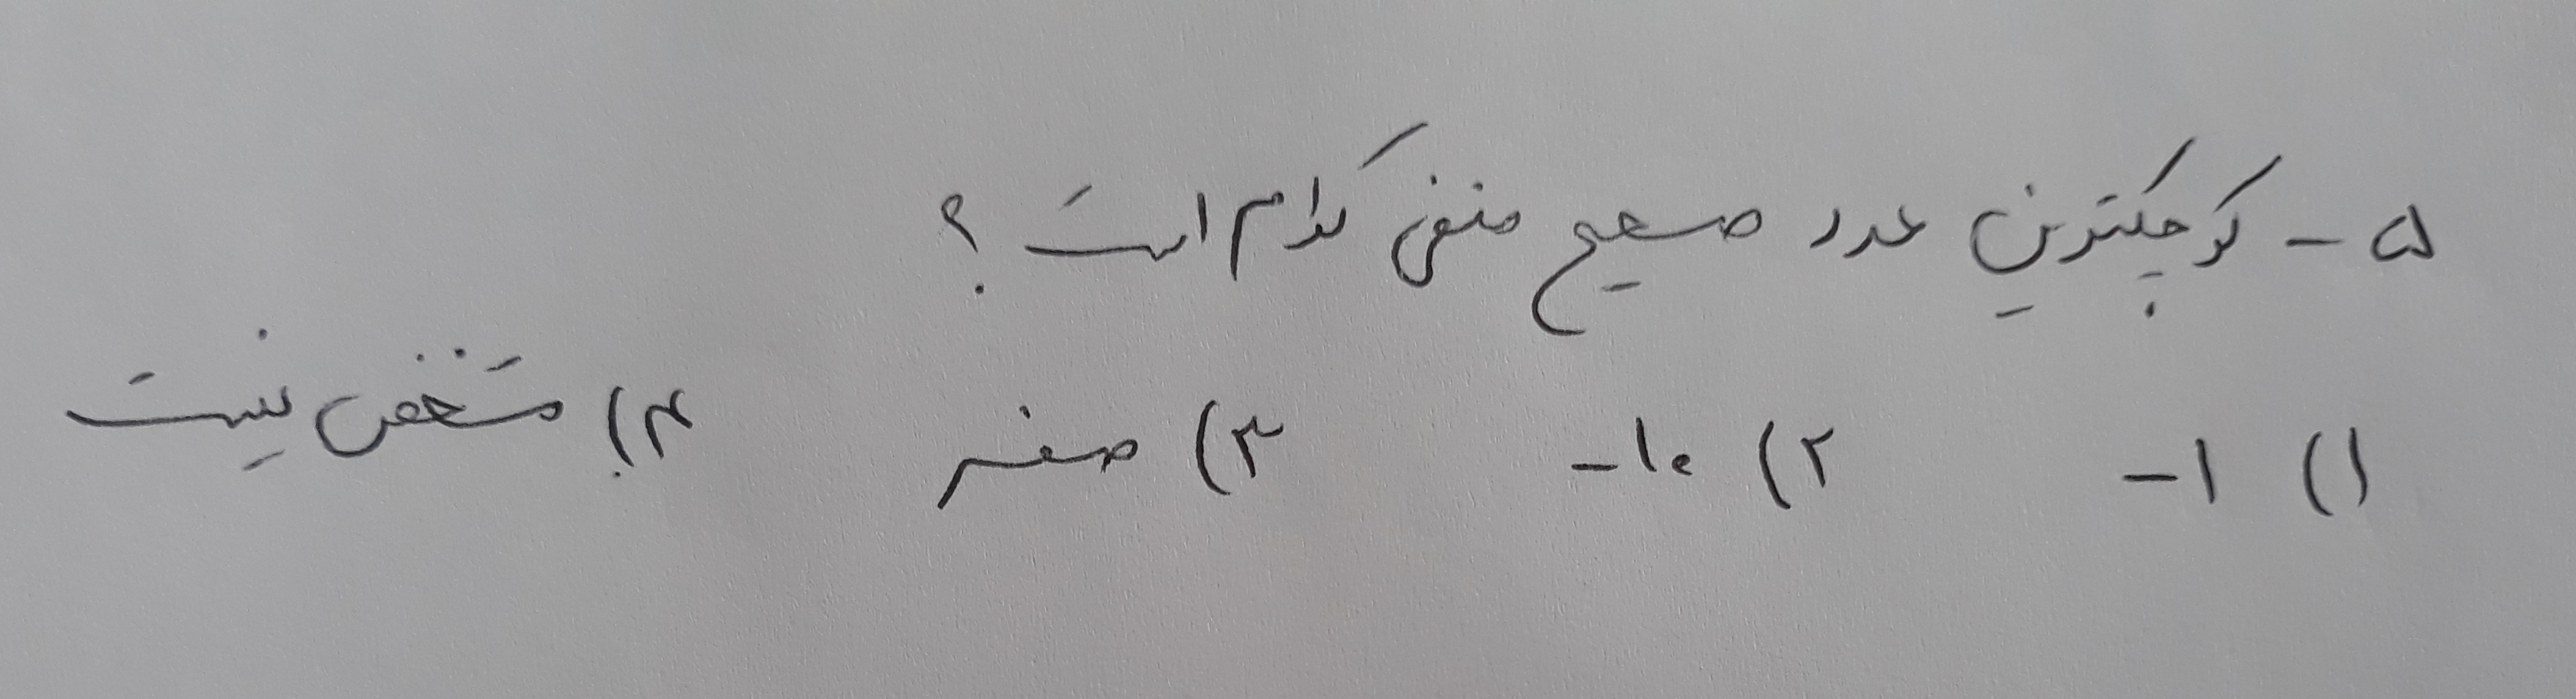 ۵ - کوچکترین عدد صحیح منفی کدام است ؟
۱) ۱- ۲) ۱۰- ۳) صفر ۴) مشخص نیست